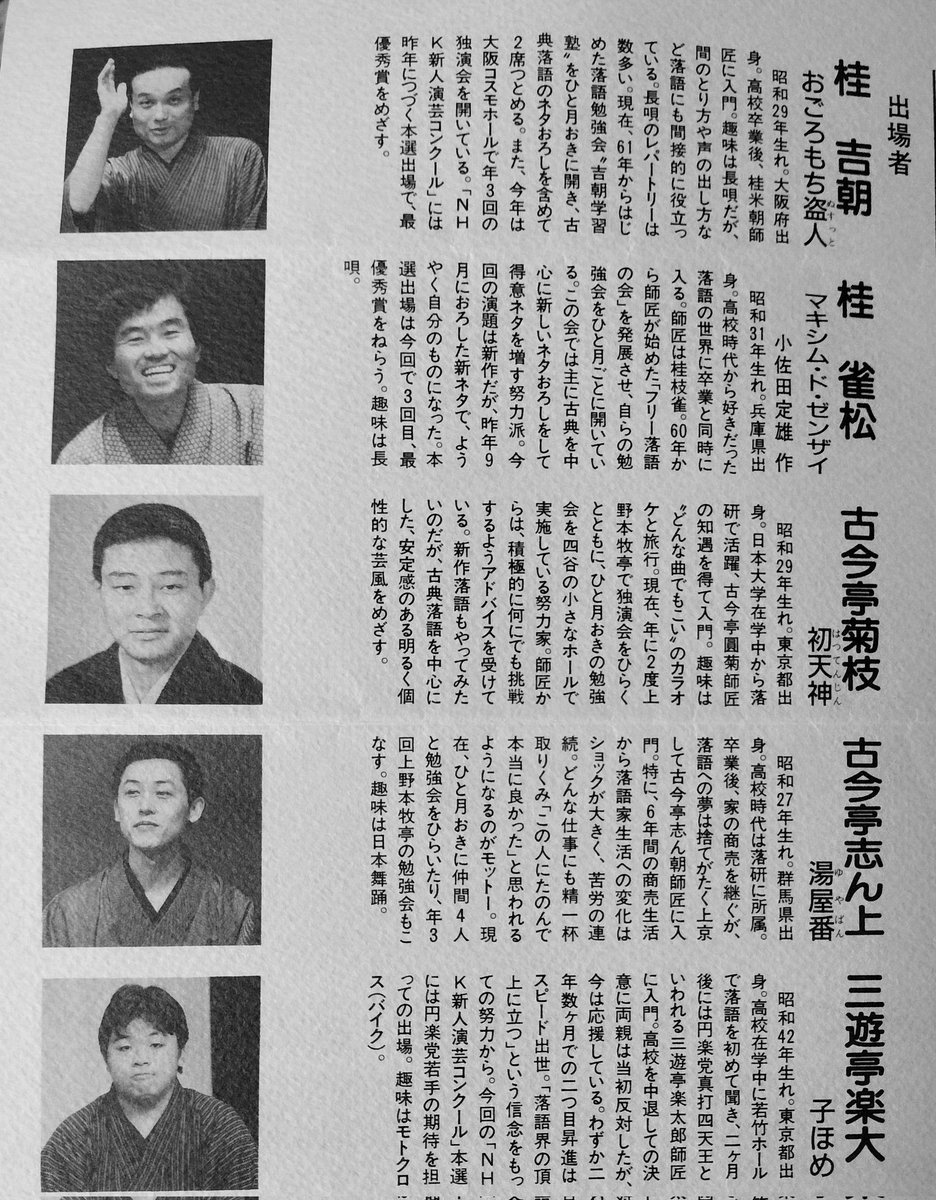 出場者
桂 吉朝
おごろもち盗人
ぬすっと
昭和29年生れ。大阪府出
身。高校卒業後、桂米朝師
匠に入門。趣味は長唄だが、
間のとり方や声の出し方な
ど落語にも間接的に役立っ
ている。長唄のレパートリーは
数多い。現在、61年からはじ
めた落語勉強会〝吉朝学習
塾〟をひと月おきに開き、古
典落語のネタおろしを含めて
2席つとめる。また、今年は
大阪コスモホールで年3回の
独演会を開いている。「NH
K新人演芸コンクール」には
昨年につづく本選出場で、最
優秀賞をめざす。
桂 雀松
マキシム・ド・ゼンザイ
小佐田定雄 作
昭和31年生れ。兵庫県出
身。高校時代から好きだった
落語の世界に卒業と同時に
入る。師匠は桂枝雀。60年か
ら師匠が始めた「フリー落語
の会」を発展させ、自らの勉
強会をひと月ごとに開いてい
る。この会では主に古典を中
心に新しいネタおろしをして
得意ネタを増す努力派。今
回の演題は新作だが、昨年9
月におろした新ネタで、よう
やく自分のものになった。本
選出場は今回で3回目、最
優秀賞をねらう。趣味は長
唄。
古今亭菊枝
初天神
はつてんじん
昭和29年生れ。東京都出
身。日本大学在学中から落
研で活躍、古今亭圓菊師匠
の知遇を得て入門。趣味は
〝どんな曲でもこい〟のカラオ
ケと旅行。現在、年に2度上
野本牧亭で独演会をひらく
とともに、ひと月おきの勉強
会を四谷の小さなホールで
実施している努力家。師匠か
らは、積極的に何にでも挑戦
するようアドバイスを受けて
いる。新作落語もやってみた
いのだが、古典落語を中心に
した、安定感のある明るく個
性的な芸風をめざす。
古今亭志ん上
湯屋番
ゆやばん
昭和27年生れ。群馬県出
身。高校時代は落研に所属。
卒業後、家の商売を継ぐが、
落語への夢は捨てがたく上京
して古今亭志ん朝師匠に入
門。特に、6年間の商売生活
から落語家生活への変化は
ショックが大きく、苦労の連
続。どんな仕事にも精一杯
取りくみ「この人にたのんで
本当に良かった」と思われる
ようになるのがモットー。現
在、ひと月おきに仲間4人
と勉強会をひらいたり、年3
回上野本牧亭の勉強会もこ
なす。趣味は日本舞踊。
三遊亭楽大
子ほめ
昭和42年生れ。東京都出
身。高校在学中に若竹ホール
で落語を初めて聞き、二ヶ月
後には円楽党真打四天王と
いわれる三遊亭楽太郎師匠
に入門。高校を中退しての決
意に両親は当初反対したが、
今は応援している。わずか二
年数ヶ月での二つ目昇進は
スピード出世。「落語界の頂
上に立つ」という信念をもっ
ての努力から。今回の「NH
K新人演芸コンクール」本選
には円楽党若手の期待を担
っての出場。趣味はモトクロ
ス(バイク)。